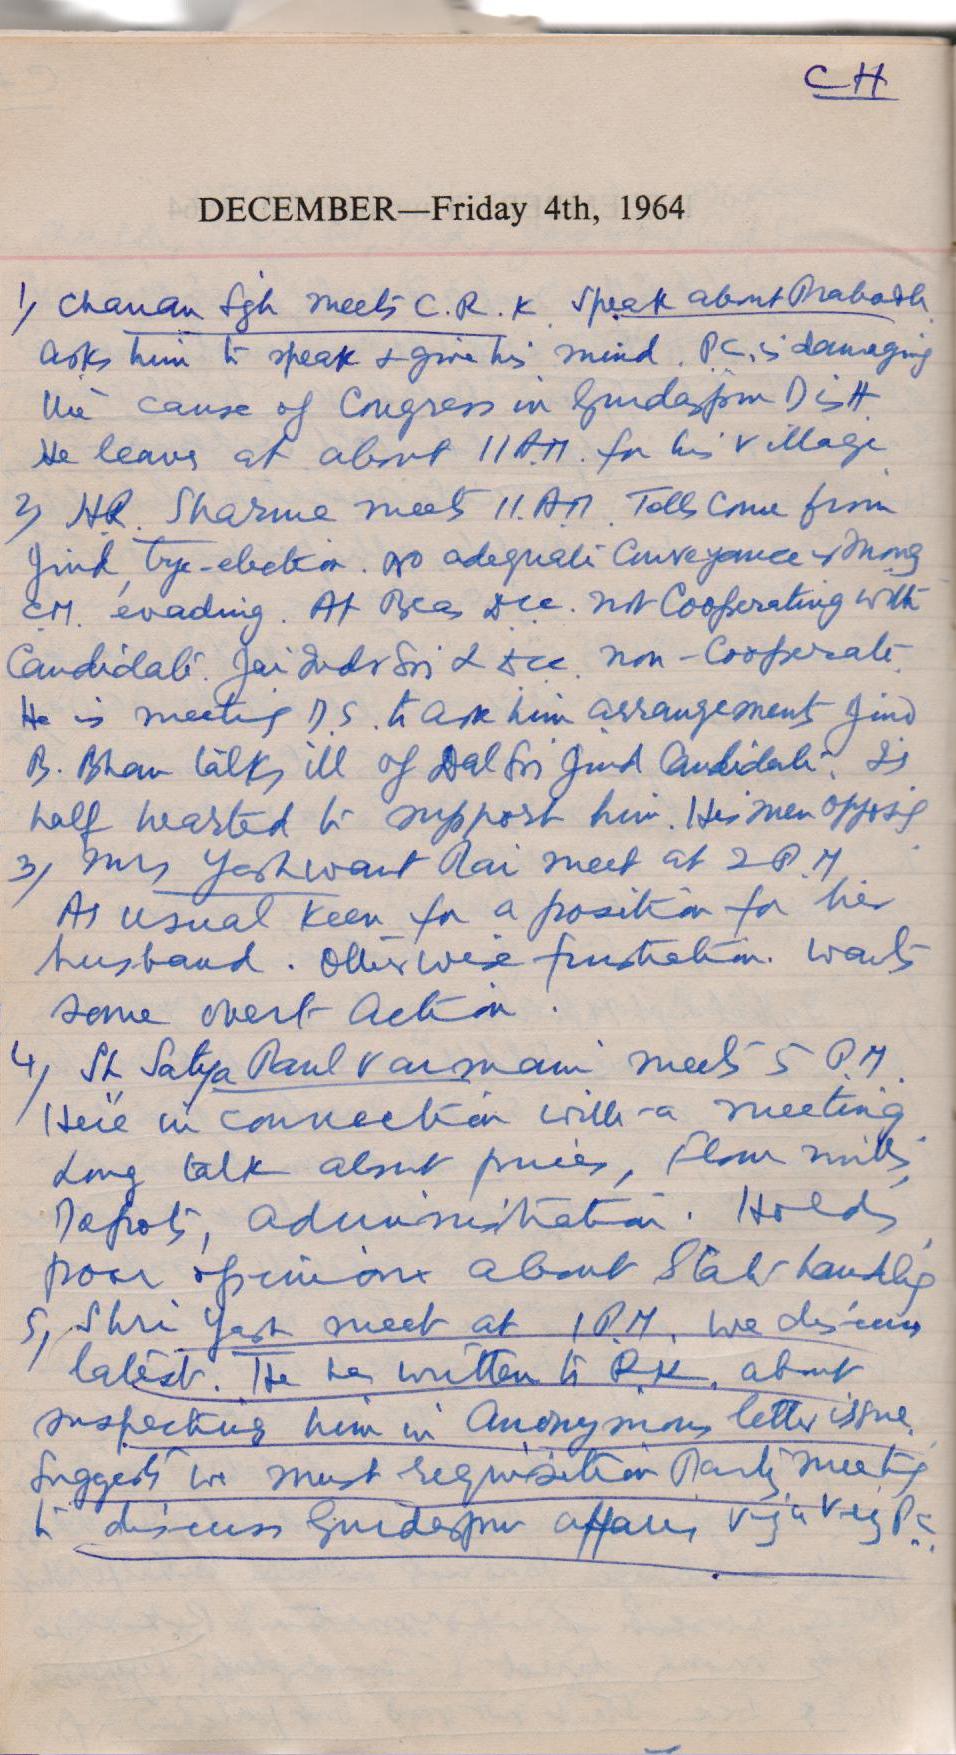 CH
DECEMBER—Friday 4th, 1964
1) Chanan Sgh meets C.R.K. Speak about Prabodh
asks him to speak & give his mind. P.C. is damaging
the cause of Congress in Gurdaspur Distt.
He leaves at about 11 A.M. for his village
2) H.R. Sharma meets 11. A.M. Tells Come from
Jind, bye-election. no adequate Conveyance & Money
C.M. evading. At Beas Dcc. not Cooperating with
Candidate. & Dcc. non-Cooperate.
He is meeting D.S. to ask him arrangement Jind
B. Bhan talks ill of Dal Jind Candidate. Is
half hearted to support him. His men opposing
3) Mrs Yashwant Rai meet at 2 P.M
As usual Keen for a position for her
husband. Otherwise frustration. wants
some overt action.
4) Sh Satya Paul Varmani meets 5 P.M.
Here in connection with a meeting
Long talk about prices, flour mills,
Depots, administration. Holds
poor opinion about State handling
5) Shri Yash meet at 1 P.M. We discuss
latest. He has written to R.K. about
suspecting him in Anonymous letter issue.
Suggests we must requisition Party meeting
to discuss Gurdaspur affairs vis a vis P.C.